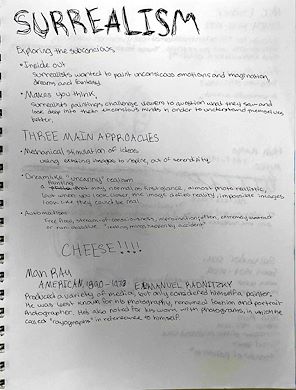 SURREALISM
Exploring the subconscious
• Inside out
Surrealists wanted to paint unconscious emotions and imagination,
dreams and fantasy
• Makes you think,
Surrealists paintings challenge viewers to question what they see and
look deep into their unconscious minds in order to understand themselves
better.
THREE MAIN APPROACHES
• Mechanical stimulation of ideas
using existing images to inspire, out of serendipity
• Dreamlike "uncanny" realism
Painting may normal on first glance, almost photo realistic,
but when you look closer the image defies reality, impossible images
look like they could be real.
• Automatism
Free flow, stream of consciousness, improvisation, extremely
or non "letting things happen by accident"
CHEESE!!!!
Man RAY
AMERICAN, 1890 - 1976 EMMANUEL RADNITZKY
Produced a variety of media, but only considered himself a painter.
He was well known for his photography, renowned fashion and portrait
photographer. He's also noted for his work with photograms, in which he
called "rayographs" in reference to himself